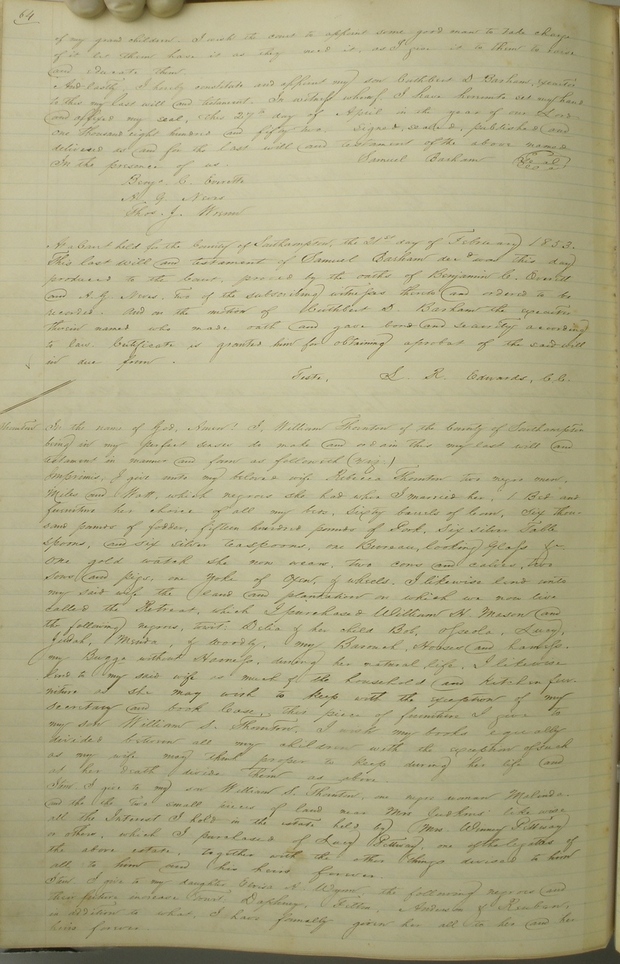 64
of my grand children. I wish the court to appoint some good man to take charge
of it let them have it as they need it, as I give it to them to raise
and educate them.
And lastly, I hereby constitute and appoint my son Cuthbert D Barham, executor
to this my last will and testament. In witness whereof, I have hereunto set my hand
and affixed my seal, this 27th day of April in the year of our Lord
one thousand eight hundred and fifty two. Signed, sealed, published and
delivered as and for the last will and testament of the above named
In the presence of us. Samuel Barham Seal
Benjn C. Everitte
A. G. Neves
Thos. J.
At a Court held for the County of Southampton, the 21st day of February 1853.
This last will and testament of Samuel Barham decd was this day
produced to the Court, proved by the oaths of Benjamin C. Everitt
and A. G. Neves, two of the subscribing witnesses thereto and ordered to be
recorded. And on the motion of Cuthbert D. Barham the executor
therein named who made oath and gave bond and security according
to law. Certificate is granted him for obtaining a probat of the said will
in due form.
Teste, L. R. Edwards, C.C.
Thornton
In the name of God, Amen! I, William Thornton of the County of Southampton
being in my perfect senses do make and ordain this my last will and
testament in manner and form as followith (viz)
Imprimis, I give unto my beloved wife Rebecca Thornton two negro men,
Miles and Watt, which negroes she had when I married her, 1 Bed and
furniture her choice of all my beds, Sixty barrels of Corn, Six thou-
sand pounds of fodder, fifteen hundred pounds of Pork, Six silver Table
spoons, and six silver teaspoons, one Bureau, looking Glass &c
One gold watch she now wears, two cows and calves, two
sows and pigs, one Yoke of Oxen, & wheels, I likewise lend unto
my said wife the land and plantation on which we now live
called the Retreat, which I purchased William H. Mason and
the following negroes, viz: Delia & her child Bob, Osceola, Lucy,
Judah, Minda, & Woodly, my Barouch, Horses and harness,
my Buggy without Harness, during her natural life, I likewise
lend to my said wife as much of the household and Kitchen fur-
niture as she may wish to keep with the exception of my
Secretary and book Case, this piece of furniture I give to
my son William S. Thornton. I wish my books equally
divided between all my children with the exception of such
as my wife may think proper to keep during her life and
at her death divide them as above.
Item I give to my son William S. Thornton, one negro woman Malinda
and the two small pieces of land near Mrs Judkins' like wise
all the Interest I hold in the estate held by Mrs. Winny Pettway
& others, which I purchased of Lucy Pettway, one of the legatees of
the above estate, together with the other things devised to him
all to him and his heirs forever.
Item I give to my daughter N. Wynn, the following negroes and
their future increase Daphney, Anderson & Reuben,
in addition to what I have formally given her all to her and her
heirs forever.